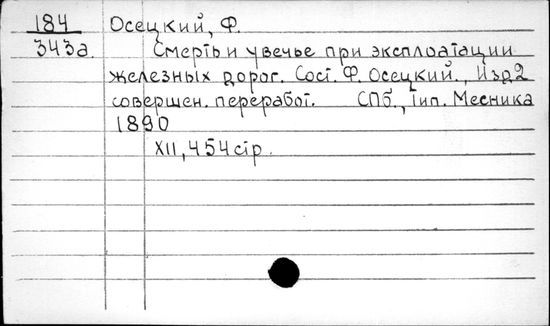 184 Осецкий, Ф.
343а. Смерть и увечье при эксплоатации
железных дорог. Сост. Ф. Осецкий., Изд2
совершен. переработ. СПб., тип. Месника
1890
XII, 454стр.